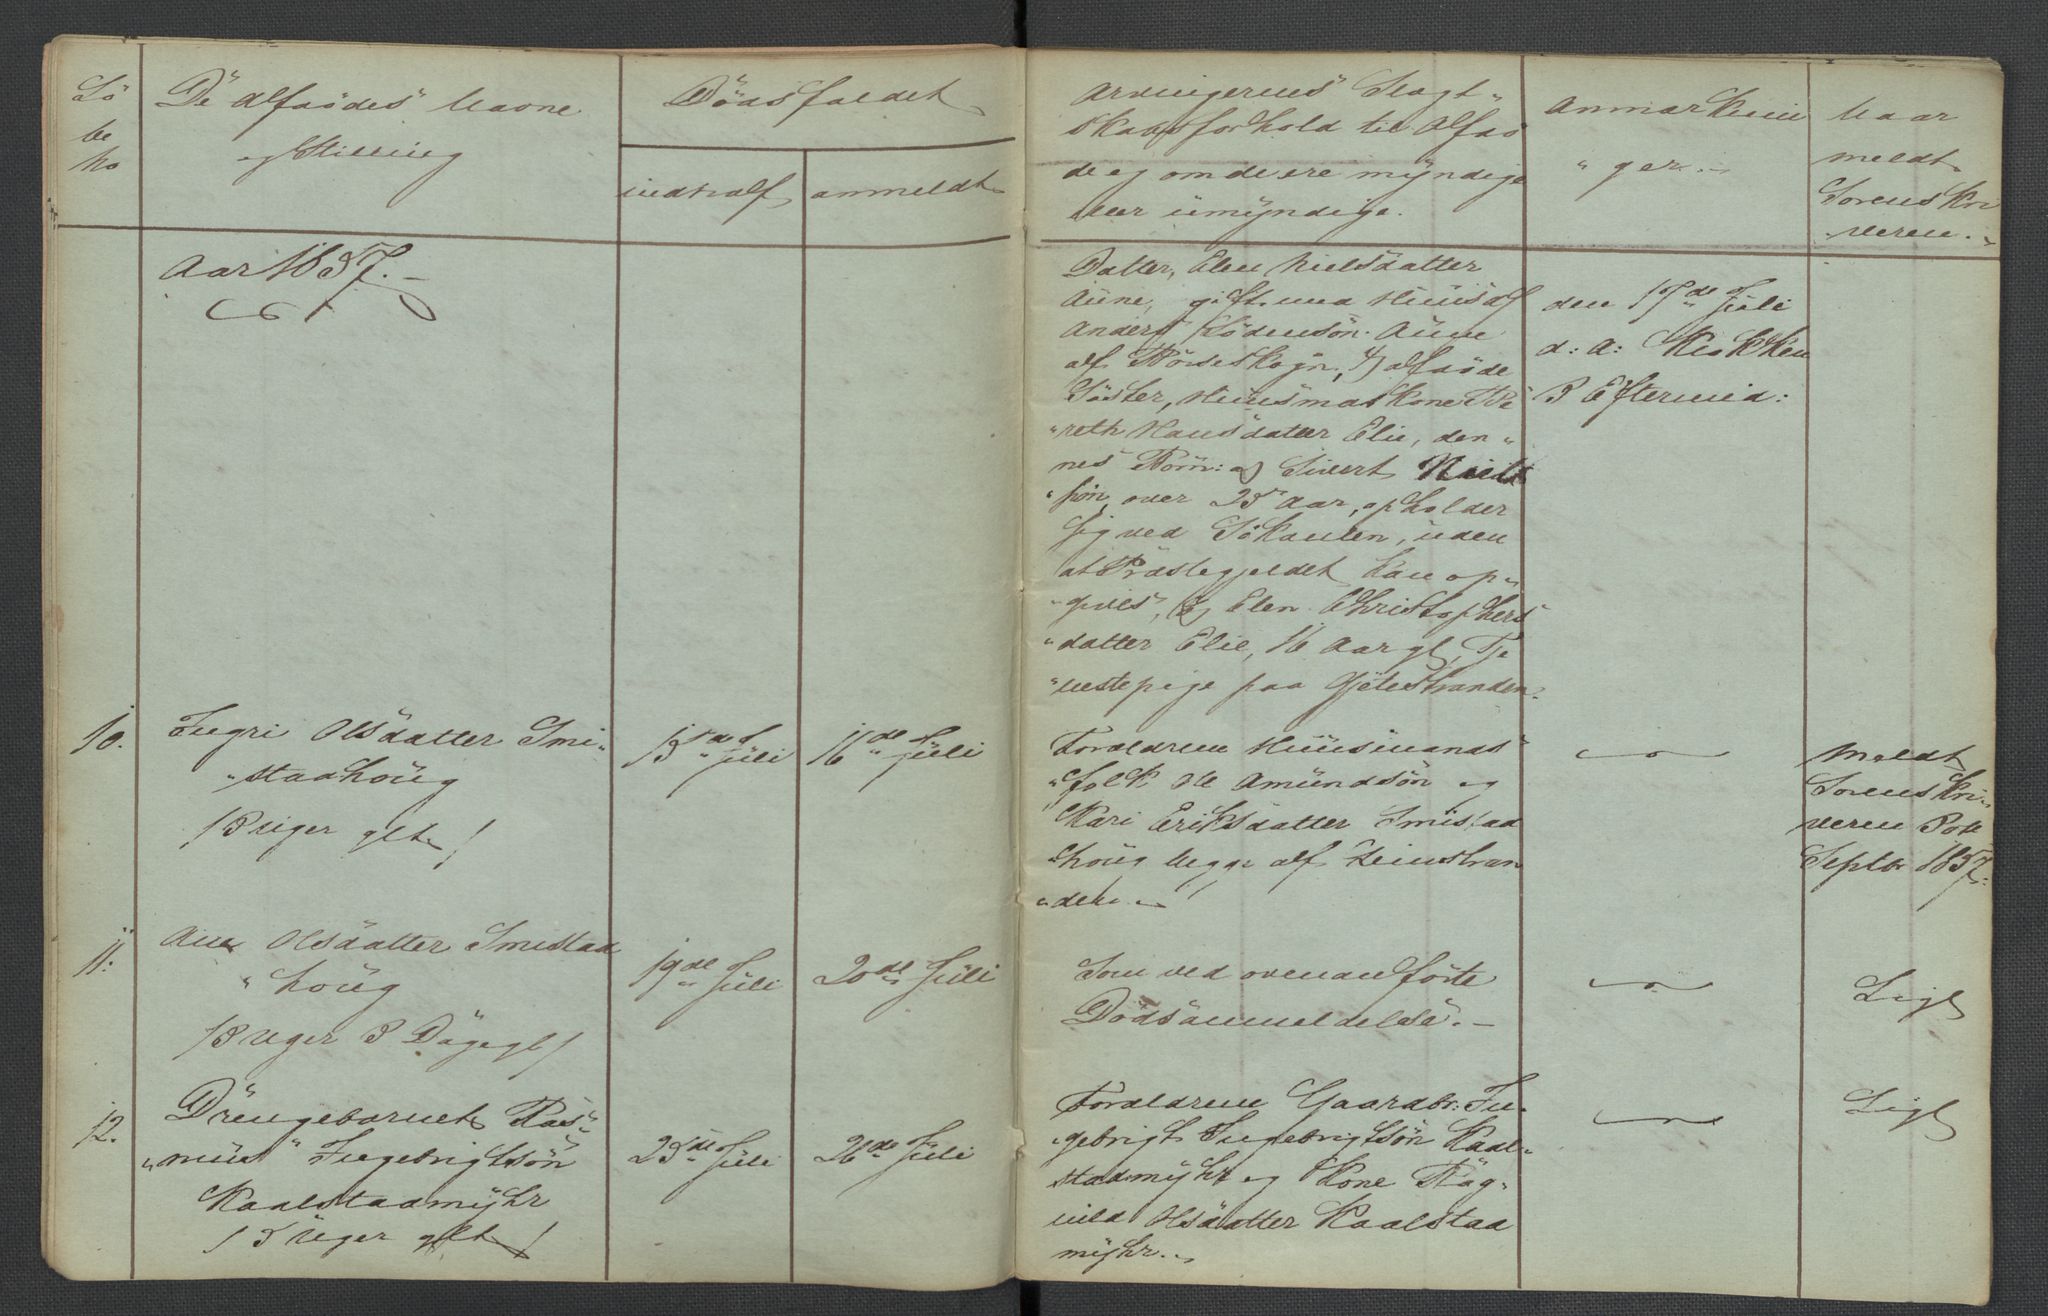 Lö
be
No
De afdödes Navne
og Stilling
Dödsfaldet
indtraf
anmeldt
Arvingernes Slægt-
skabsforhold til Afdö
de og om de ere myndige
eller umyndige.
Anmærknin
"ger.-
Naar
meldt
Sorenskri
veren.-
Aar 1857.-
Datter, Elen Nielsdatter
Aune, gift med Huusmd
Anders
Aune
af Börseskogn, 4) afdöde
Söster, Huusmaskone Be
"reth Hansdatter Elie, den-
nes Börn: a) Sivert Niels
"sön, over 25 Aar, opholder
sig ved Sökanten, uden
at Præstegjeldet kan op-
"gives, b) Elen Christophers
"datter Elie, 16 Aar gl, Tje
"nestepige paa Gjetestranden.
den 17de Juli
d: A: Klokken
3 Eftermid:
10.
Ingri Olsdatter Smi-
"stadhoug
/3 Uger glt/
15de Juli
16de Juli
Forældrene Huusmands
"folk Ole Amundsön og
Kari Eriksdatter Smistad
"houg begge af Leinstran
"den.-
Meldt
Sorenskri-
veren 30te
Septbr 1857.
11.
Ane Olsdatter Smistad
"houg
/3 Uger 3 Dage gl/
19de Juli
20de Juli
Som ved ovenanförte
Dödsanmeldelse.-
Ligl
12.
Drengebarnet Ras-
"mus Ingebrigtsön
Kaalstadmyhr
/5 Uger glt/
25de Juli
26de Juli
Forældrene Gaardbr: In-
"gebrigt Ingebrigtsön Kaal-
stadmyhr og Kone Rag-
nild Olsdatter Kaalstad
myhr.-
Ligl